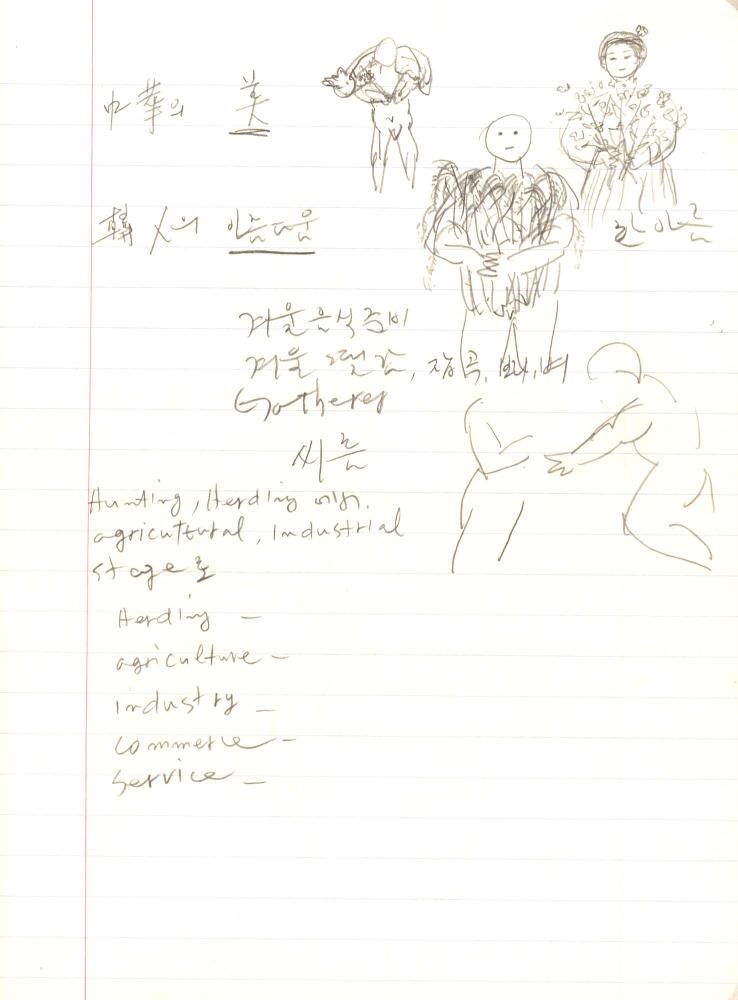 中華의 美
韓人의 아름다움
한아름
겨울음식준비
겨울 땔감, 잡곡, 보리, 벼
Gatherer
씨름
Hunting, Herding 에서.
agricultural, industrial
stage로
Herding —
agriculture —
industry —
commerce —
service —